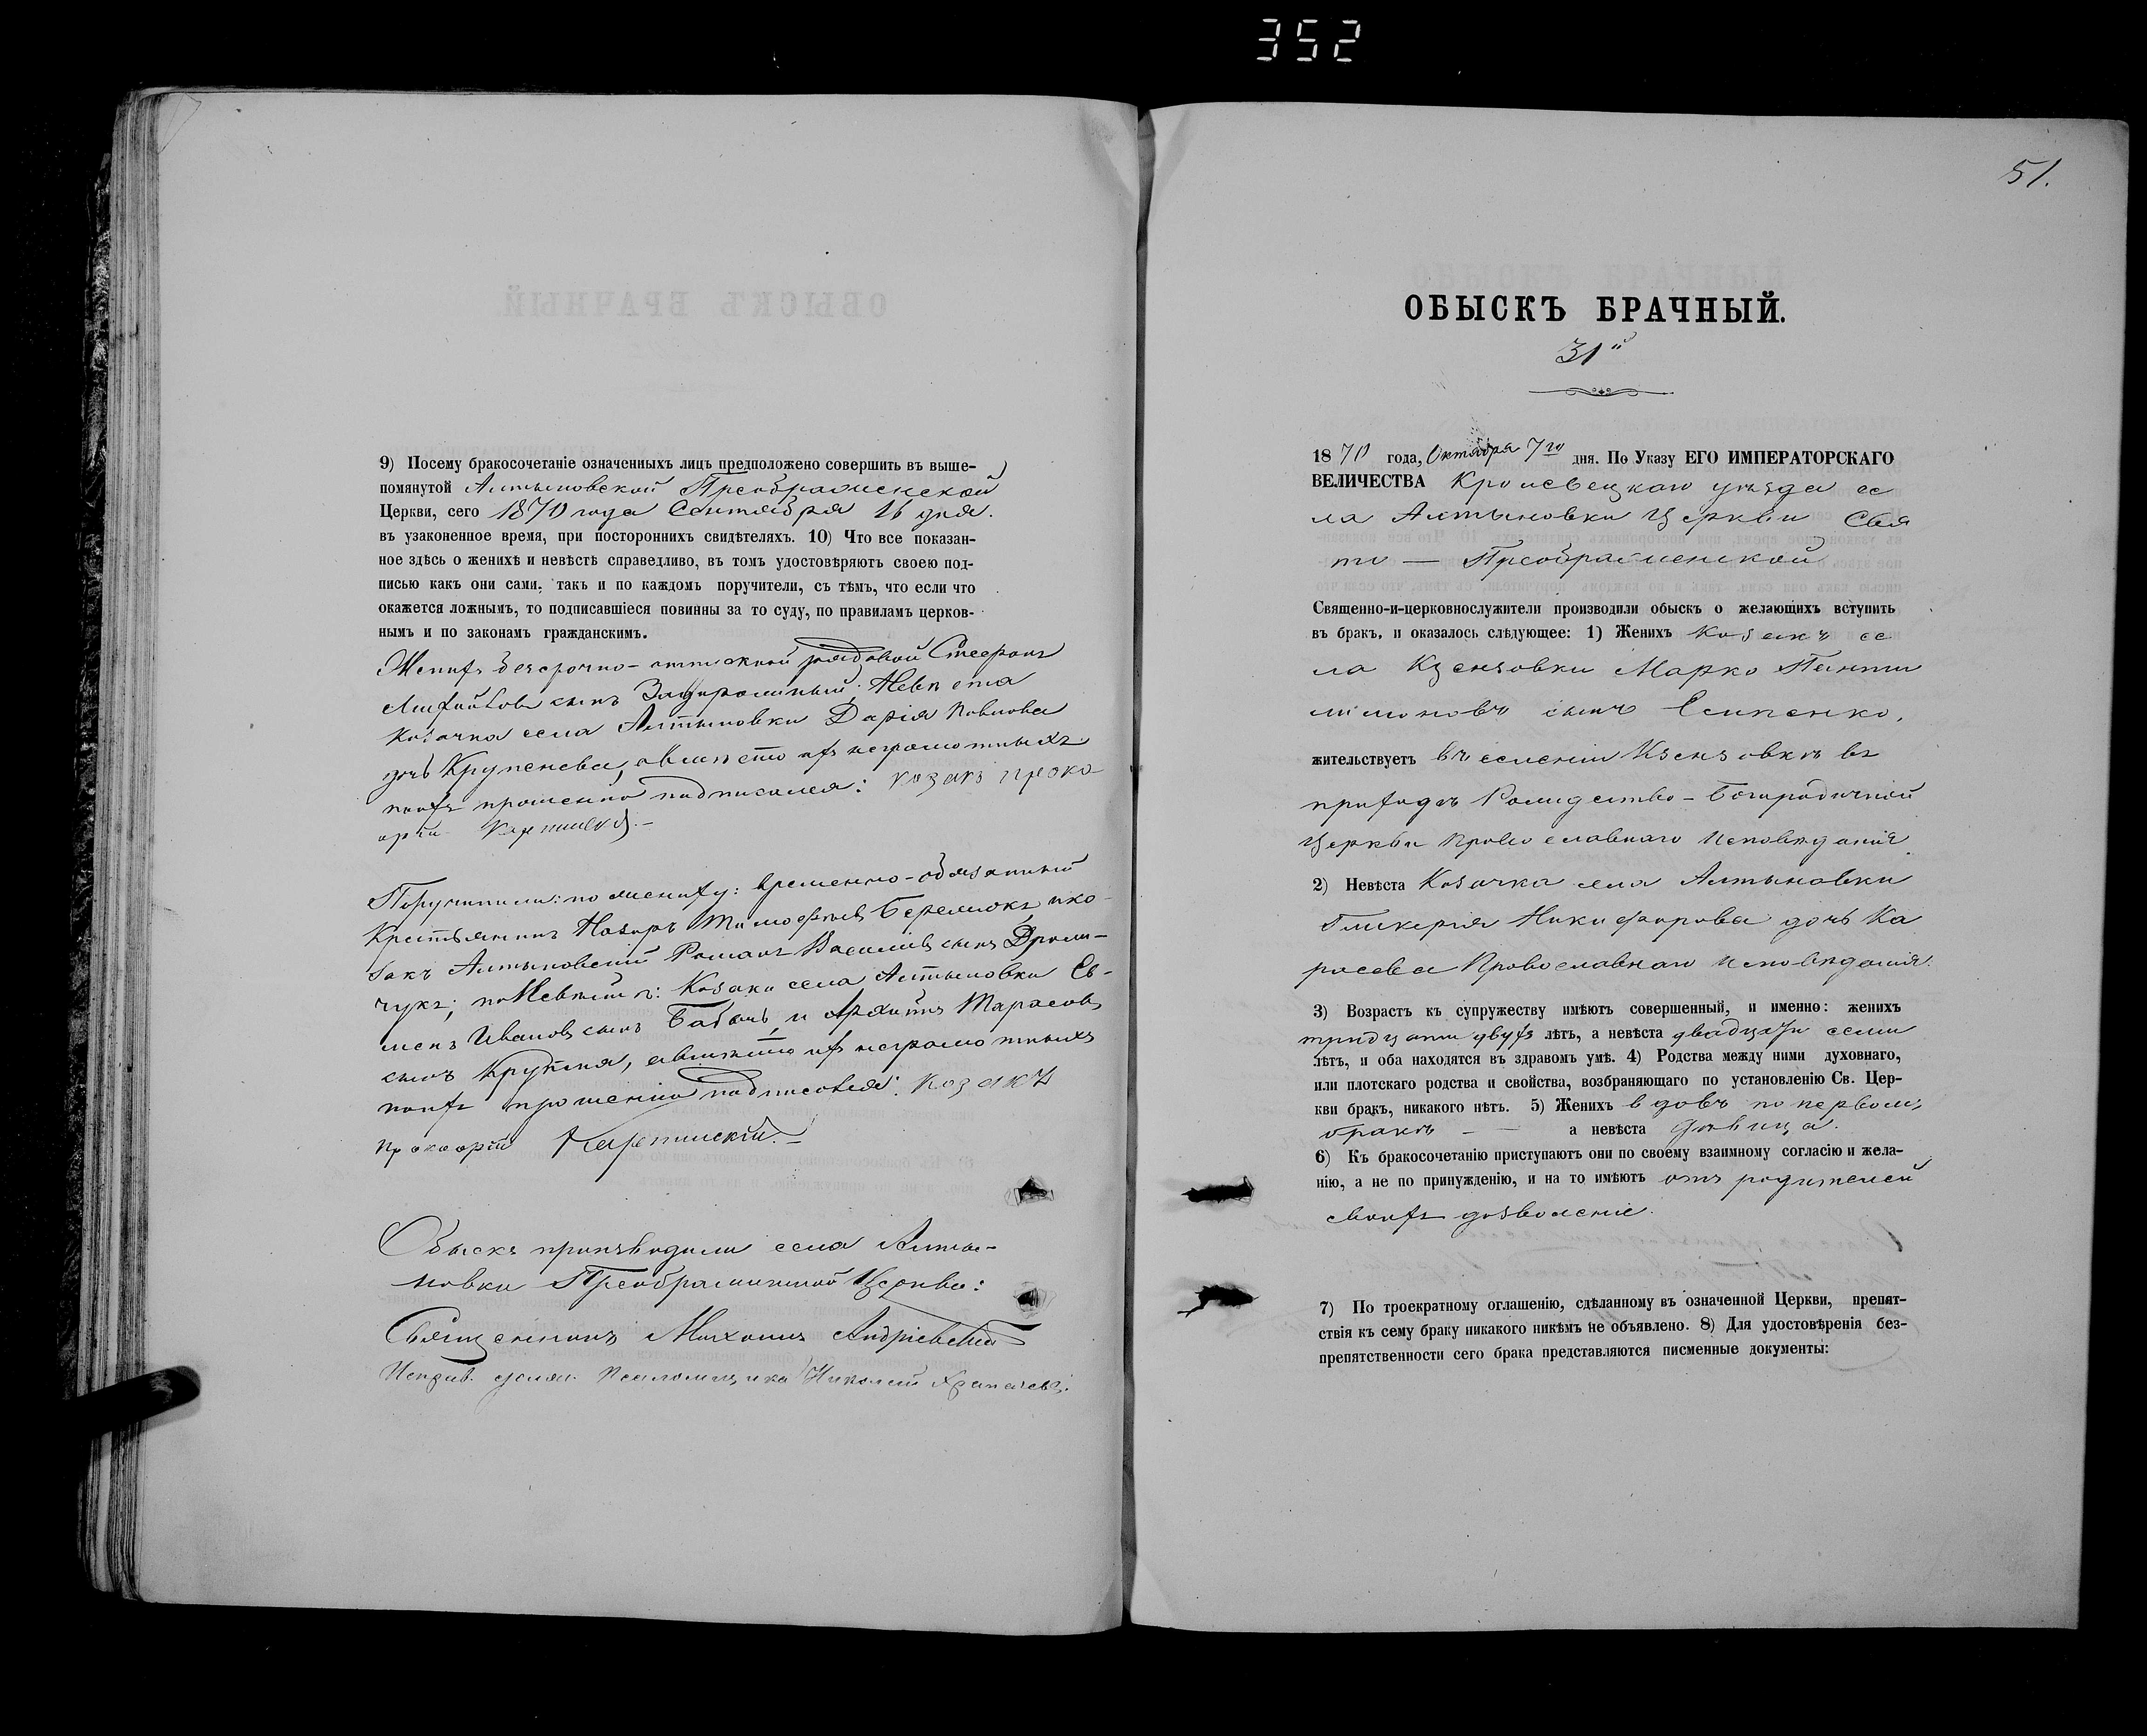 352
9) Посему бракосочетаніе означенныхъ лицъ предположено совершить въ выше-
помянутой Алтыновской Преображенской
Церкви, сего 1870 года Сентября 16 дня.
въ узаконенное время, при постороннихъ свидѣтеляхъ. 10) Что все показан-
ное здѣсь о женихѣ и невѣстѣ справедливо, въ томъ удостовѣряютъ своею под-
писью какъ они сами, такъ и по каждомъ поручители, съ тѣмъ, что если что
окажется ложнымъ, то подписавшіеся повинны за то суду, по правиламъ церков-
нымъ и по законамъ гражданскимъ.
Женихъ безсрочно-отпускной рядовой
сынъ Невѣста
козачка села Алтыновки Дарія Павлова
дочь Крупенева, а вмѣсто ихъ неграмотныхъ
поихъ прошенію подписался: козакъ Проко-
фій
Поручители: по женихѣ: временно-обязанный
Крестьянинъ Назаръ Тимофѣевъ и ко-
закъ Алтыновскій Романъ Василіевъ сынъ
чукъ; по Невѣстѣ: Козаки села Алтыновки Се-
менъ Ивановъ сынъ и Архипъ Тарасовъ
сынъ а вмѣсто ихъ неграмотныхъ
поихъ прошенію подписался: козакъ
Прокофій
Обыскъ производили села Алты-
новки Преображенской Церкви:
Священникъ Михаилъ Андріевскій
Псаломщика Николай
51.
ОБЫСКЪ БРАЧНЫЙ.
31й
1870 года, Октября 7го дня. По Указу ЕГО ИМПЕРАТОРСКАГО
ВЕЛИЧЕСТВА Кролевецкаго уѣзда се
ла Алтыновки Церкви Свя
то — Преображенской
Священно-и-церковнослужители производили обыскъ о желающихъ вступить
въ бракъ, и оказалось слѣдующее: 1) Женихъ Козакъ се
ла Ксензовки Марко Панти
лимоновъ сынъ Есипенко,
жительствуетъ въ селеніи Ксензовкѣ въ
приходѣ Рождество-Богородичной
Церкви Православнаго Исповѣданія.
2) Невѣста Козачка села Алтыновки
Гликерія Никифорова дочь Ка
расева Православнаго Исповѣданія.
3) Возрастъ къ супружеству имѣютъ совершенный, и именно: женихъ
тридцати двухъ лѣтъ, а невѣста двадцати семи
лѣтъ, и оба находятся въ здравомъ умѣ. 4) Родства между ними духовнаго,
или плотскаго родства и свойства, возбраняющаго по установленію Св. Цер-
кви бракъ, никакого нѣтъ. 5) Женихъ вдовъ по первомъ
бракѣ — а невѣста дѣвица.
6) Къ бракосочетанію приступаютъ они по своему взаимному согласію и жела-
нію, а не по принужденію, и на то имѣютъ отъ родителей
своихъ дозволеніе.
7) По троекратному оглашенію, сдѣланному въ означенной Церкви, препят-
ствія къ сему браку никакого никѣмъ не объявлено. 8) Для удостовѣренія без-
препятственности сего брака представляются писменные документы: